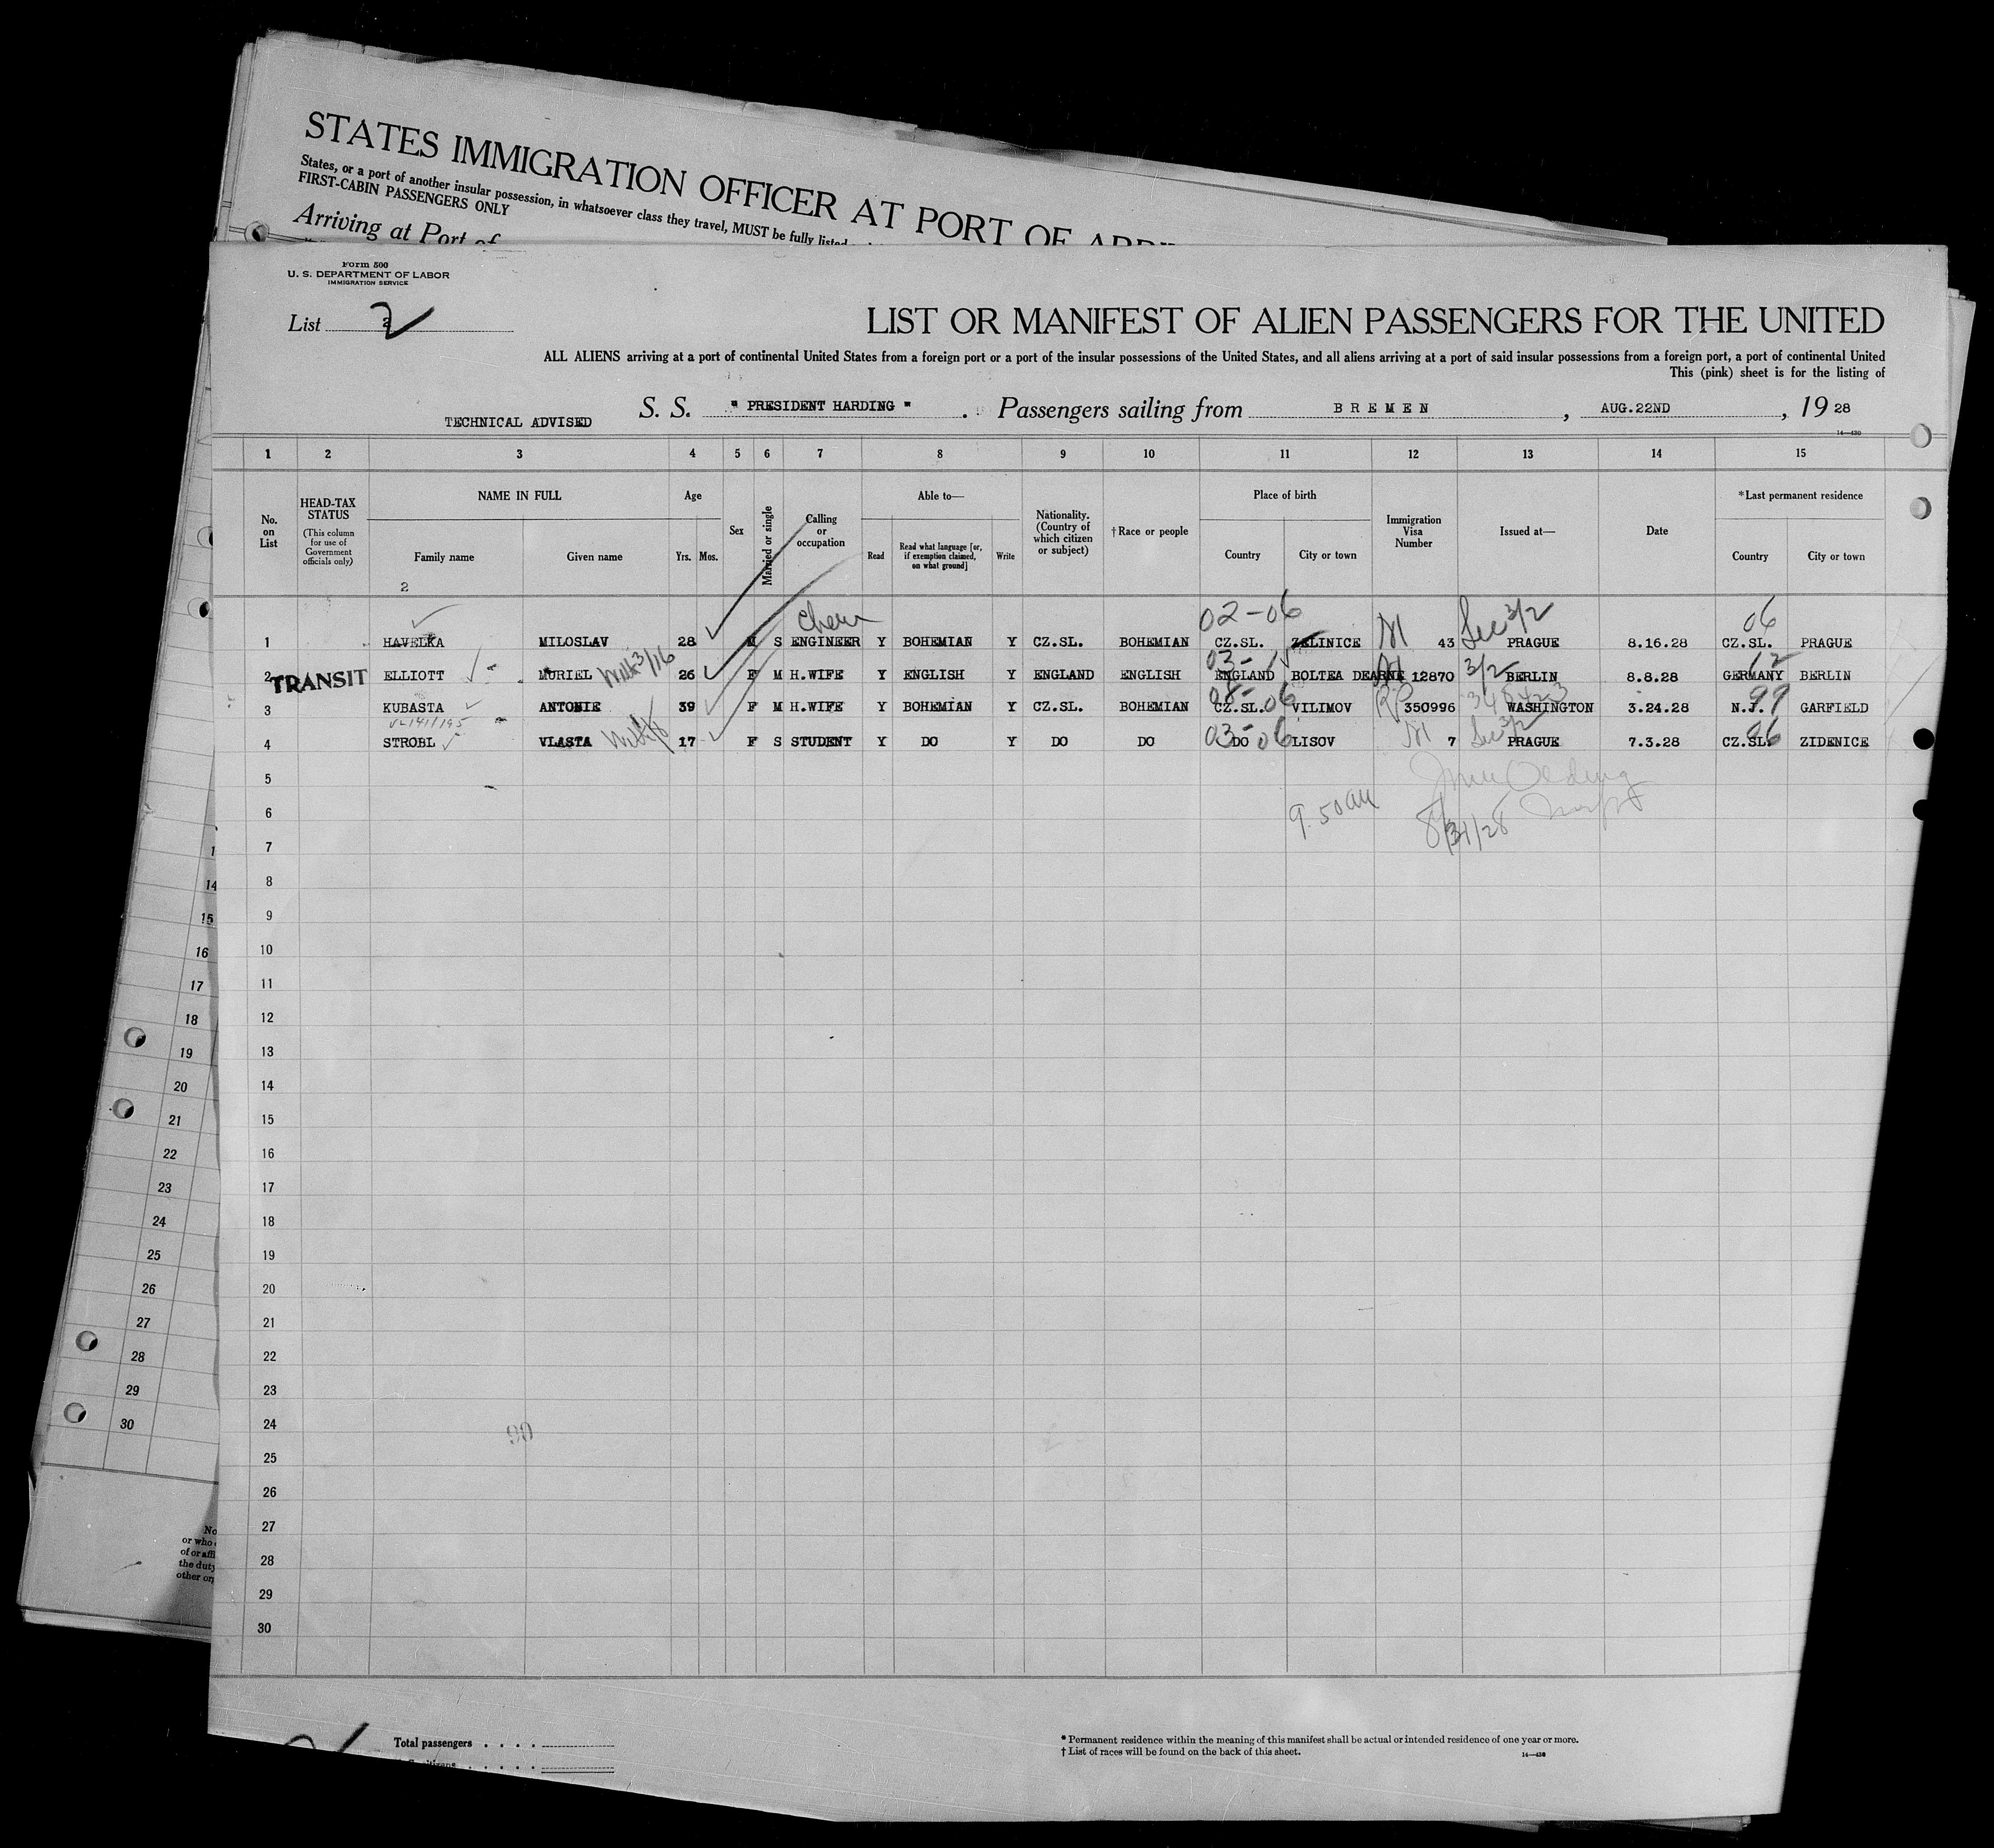 STATES IMMIGRATION OFFICER AT PORT OF
States, or a port of another insular possession, in whatsoever class they travel, MUST be fully listed
FIRST-CABIN PASSENGERS ONLY
Arriving at Port of
Form 500
U. S. DEPARTMENT OF LABOR
IMMIGRATION SERVICE
List 2
LIST OR MANIFEST OF ALIEN PASSENGERS FOR THE UNITED
ALL ALIENS arriving at a port of continental United States from a foreign port or a port of the insular possessions of the United States, and all aliens arriving at a port of said insular possessions from a foreign port, a port of continental United
This (pink) sheet is for the listing of
TECHNICAL ADVISED S. S. " PRESIDENT HARDING " . Passengers sailing from BREMEN , AUG.22ND , 19 28
14—430
1 2 3 4 5 6 7 8 9 10 11 12 13 14 15
No. on List
HEAD-TAX STATUS (This column for use of Government officials only)
NAME IN FULL
Family name Given name
2
Age
Yrs. Mos.
Sex
Married or single
Calling or occupation
Able to—
Read Read what language [or, if exemption claimed, on what ground] Write
Nationality. (Country of which citizen or subject)
†Race or people
Place of birth
Country City or town
Immigration Visa Number
Issued at—
Date
*Last permanent residence
Country City or town
chem 02-06 06
1 HAVELKA MILOSLAV 28 M S ENGINEER Y BOHEMIAN Y CZ.SL. BOHEMIAN CZ.SL. ZELINICE M 43 Sec 3/2 PRAGUE 8.16.28 CZ.SL. PRAGUE
03-15 12
2 TRANSIT ELLIOTT MURIEL 3/16 26 F M H.WIFE Y ENGLISH Y ENGLAND ENGLISH ENGLAND BOLTEA DEARNE 12870 3/2 BERLIN 8.8.28 GERMANY BERLIN
08-06 99
3 KUBASTA ANTONIE 39 F M H.WIFE Y BOHEMIAN Y CZ.SL. BOHEMIAN CZ.SL. VILIMOV RP 350996 WASHINGTON 3.24.28 N.J. GARFIELD
03-06 06
4 STROBL VLASTA 17 F S STUDENT Y DO Y DO DO DO LISOV M 7 Sec 3/2 PRAGUE 7.3.28 CZ.SL. ZIDENICE
5
6 9.50 AM
7 8/31/28
8
9
10
11
12
13
14
15
16
17
18
19
20
21
22
23
24
25
26
27
28
29
30
1
14
15
16
17
18
19
20
21
22
23
24
25
26
27
28
29
30
90
No
or who
of or affi
the duty
other or
Total passengers . . . .
* Permanent residence within the meaning of this manifest shall be actual or intended residence of one year or more.
† List of races will be found on the back of this sheet.
14—430